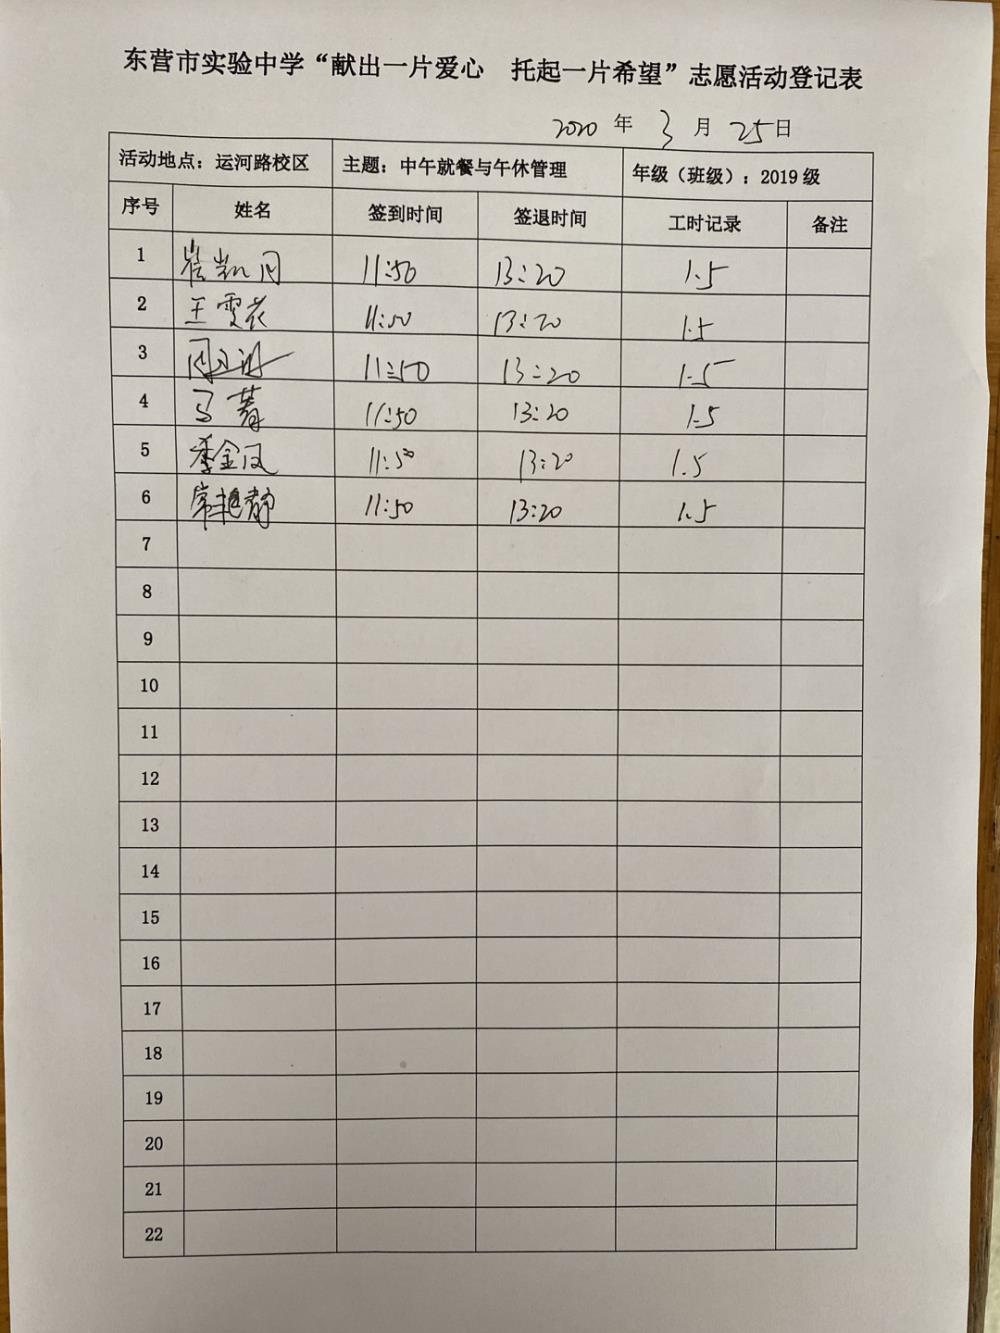 东营市实验中学“献出一片爱心 托起一片希望”志愿活动登记表
2020 年 3 月 25 日
活动地点：运河路校区 主题：中午就餐与午休管理 年级（班级）：2019 级
序号 姓名 签到时间 签退时间 工时记录 备注
1 崔凯同 11:50 13:20 1.5
2 王雯花 11:50 13:20 1.5
3 11:50 13:20 1.5
4 马菁 11:50 13:20 1.5
5 季金凤 11:50 13:20 1.5
6 常艳静 11:50 13:20 1.5
7
8
9
10
11
12
13
14
15
16
17
18
19
20
21
22